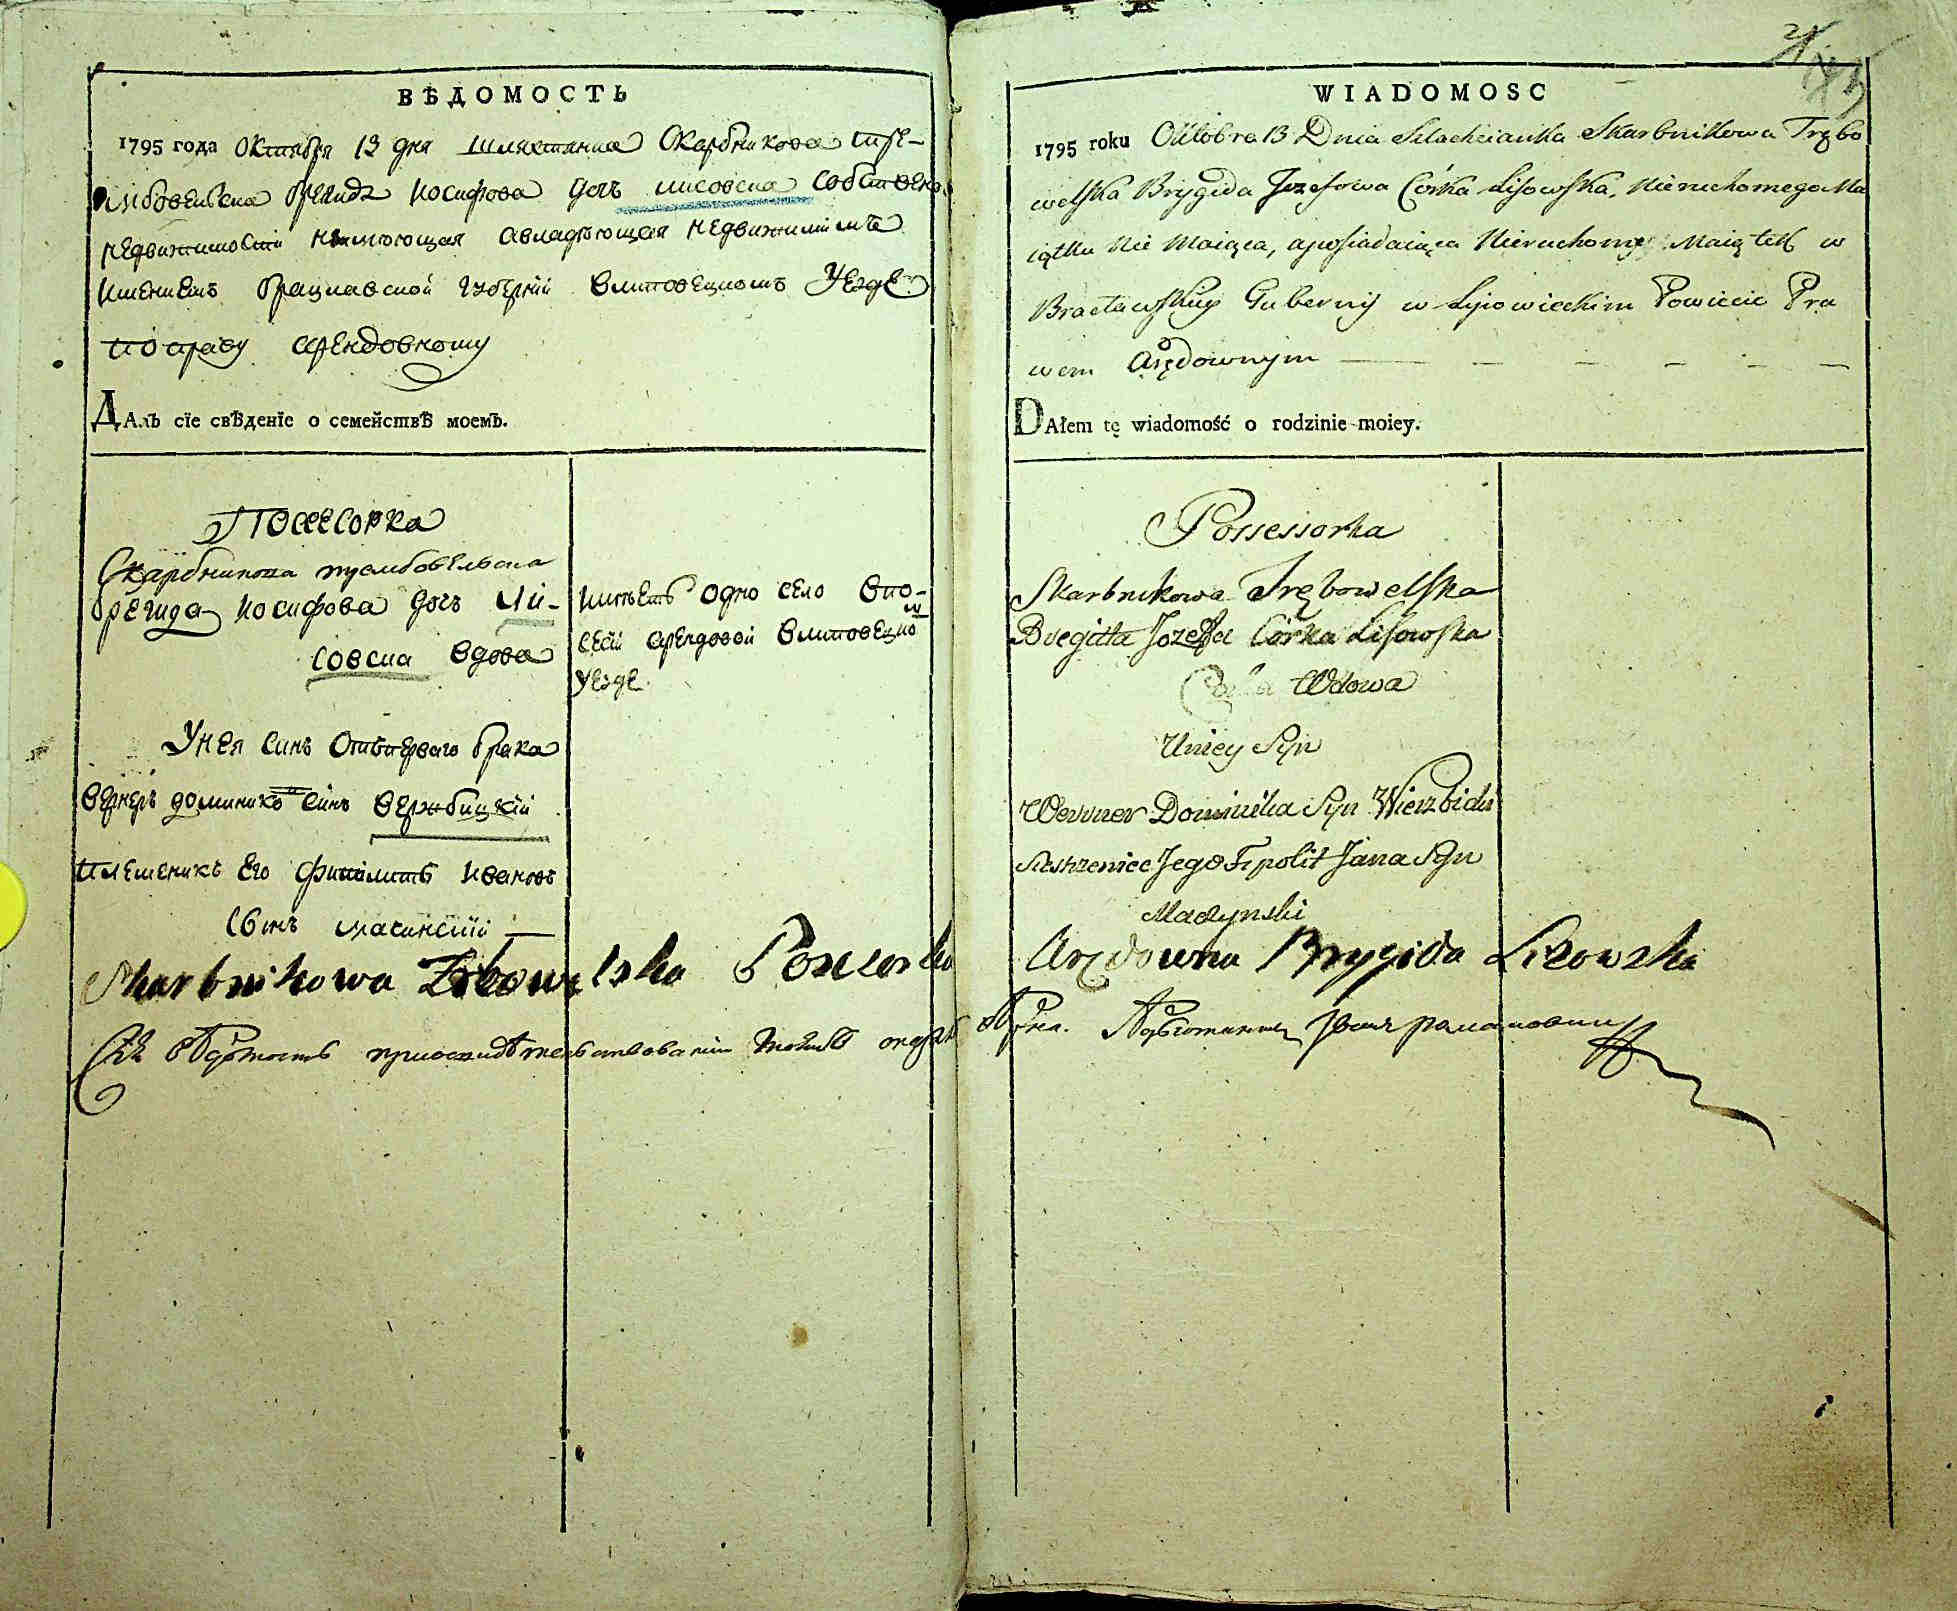 ВѢДОМОСТЬ
1795 года Октября 13 дня шляхтянка Скарбникова тре-
мбовельска бригида иосифова дочь лисовска собствено
недвижимости неимеющая авладеющая недвижимимъ
имениемъ брацлавской губернiи влиповецкомъ Уезде
по праву арендовному
ДАлъ сїе свѢденїе о семействѢ моемЪ.
Посесорка
Скарбникова трембовельска
бригида иосифова дочь Ли-
совска вдова
имѣетъ одно село впо-
сесiи арендовой влиповецко
уезде.
Унея синъ отъперваго брака
вернеръ доминика синъ вержбицкiй
племеникъ его иполитъ ивановъ
Skarbnikowa Possesorka
Сiя вѣдомость
WIADOMOSC
1795 roku Oktobra 13 Dnia Szlachcianka Skarbnikowa Trębo
welska Brygida Jozefowa Córka Lisowska, Nieruchomego Ma
iątku Nie Maiąca, a posiadaiąca Nieruchomy Maiątek w
Bracławskiey Gubernij w Lipowieckim Powiecie Pra
wem Arędownym
DAłem tę wiadomość o rodzinie moiey.
Possessorka
Skarbnikowa Trębowelska
Bregitta Jozefa Córka Lisowska
Wdowa
Uniey Syn
Werner Dominika Syn Wierzbicki
Siestrzeniec Jego Ipolit Jana Syn
Maczynski
Arędowna Brygida Lisowska